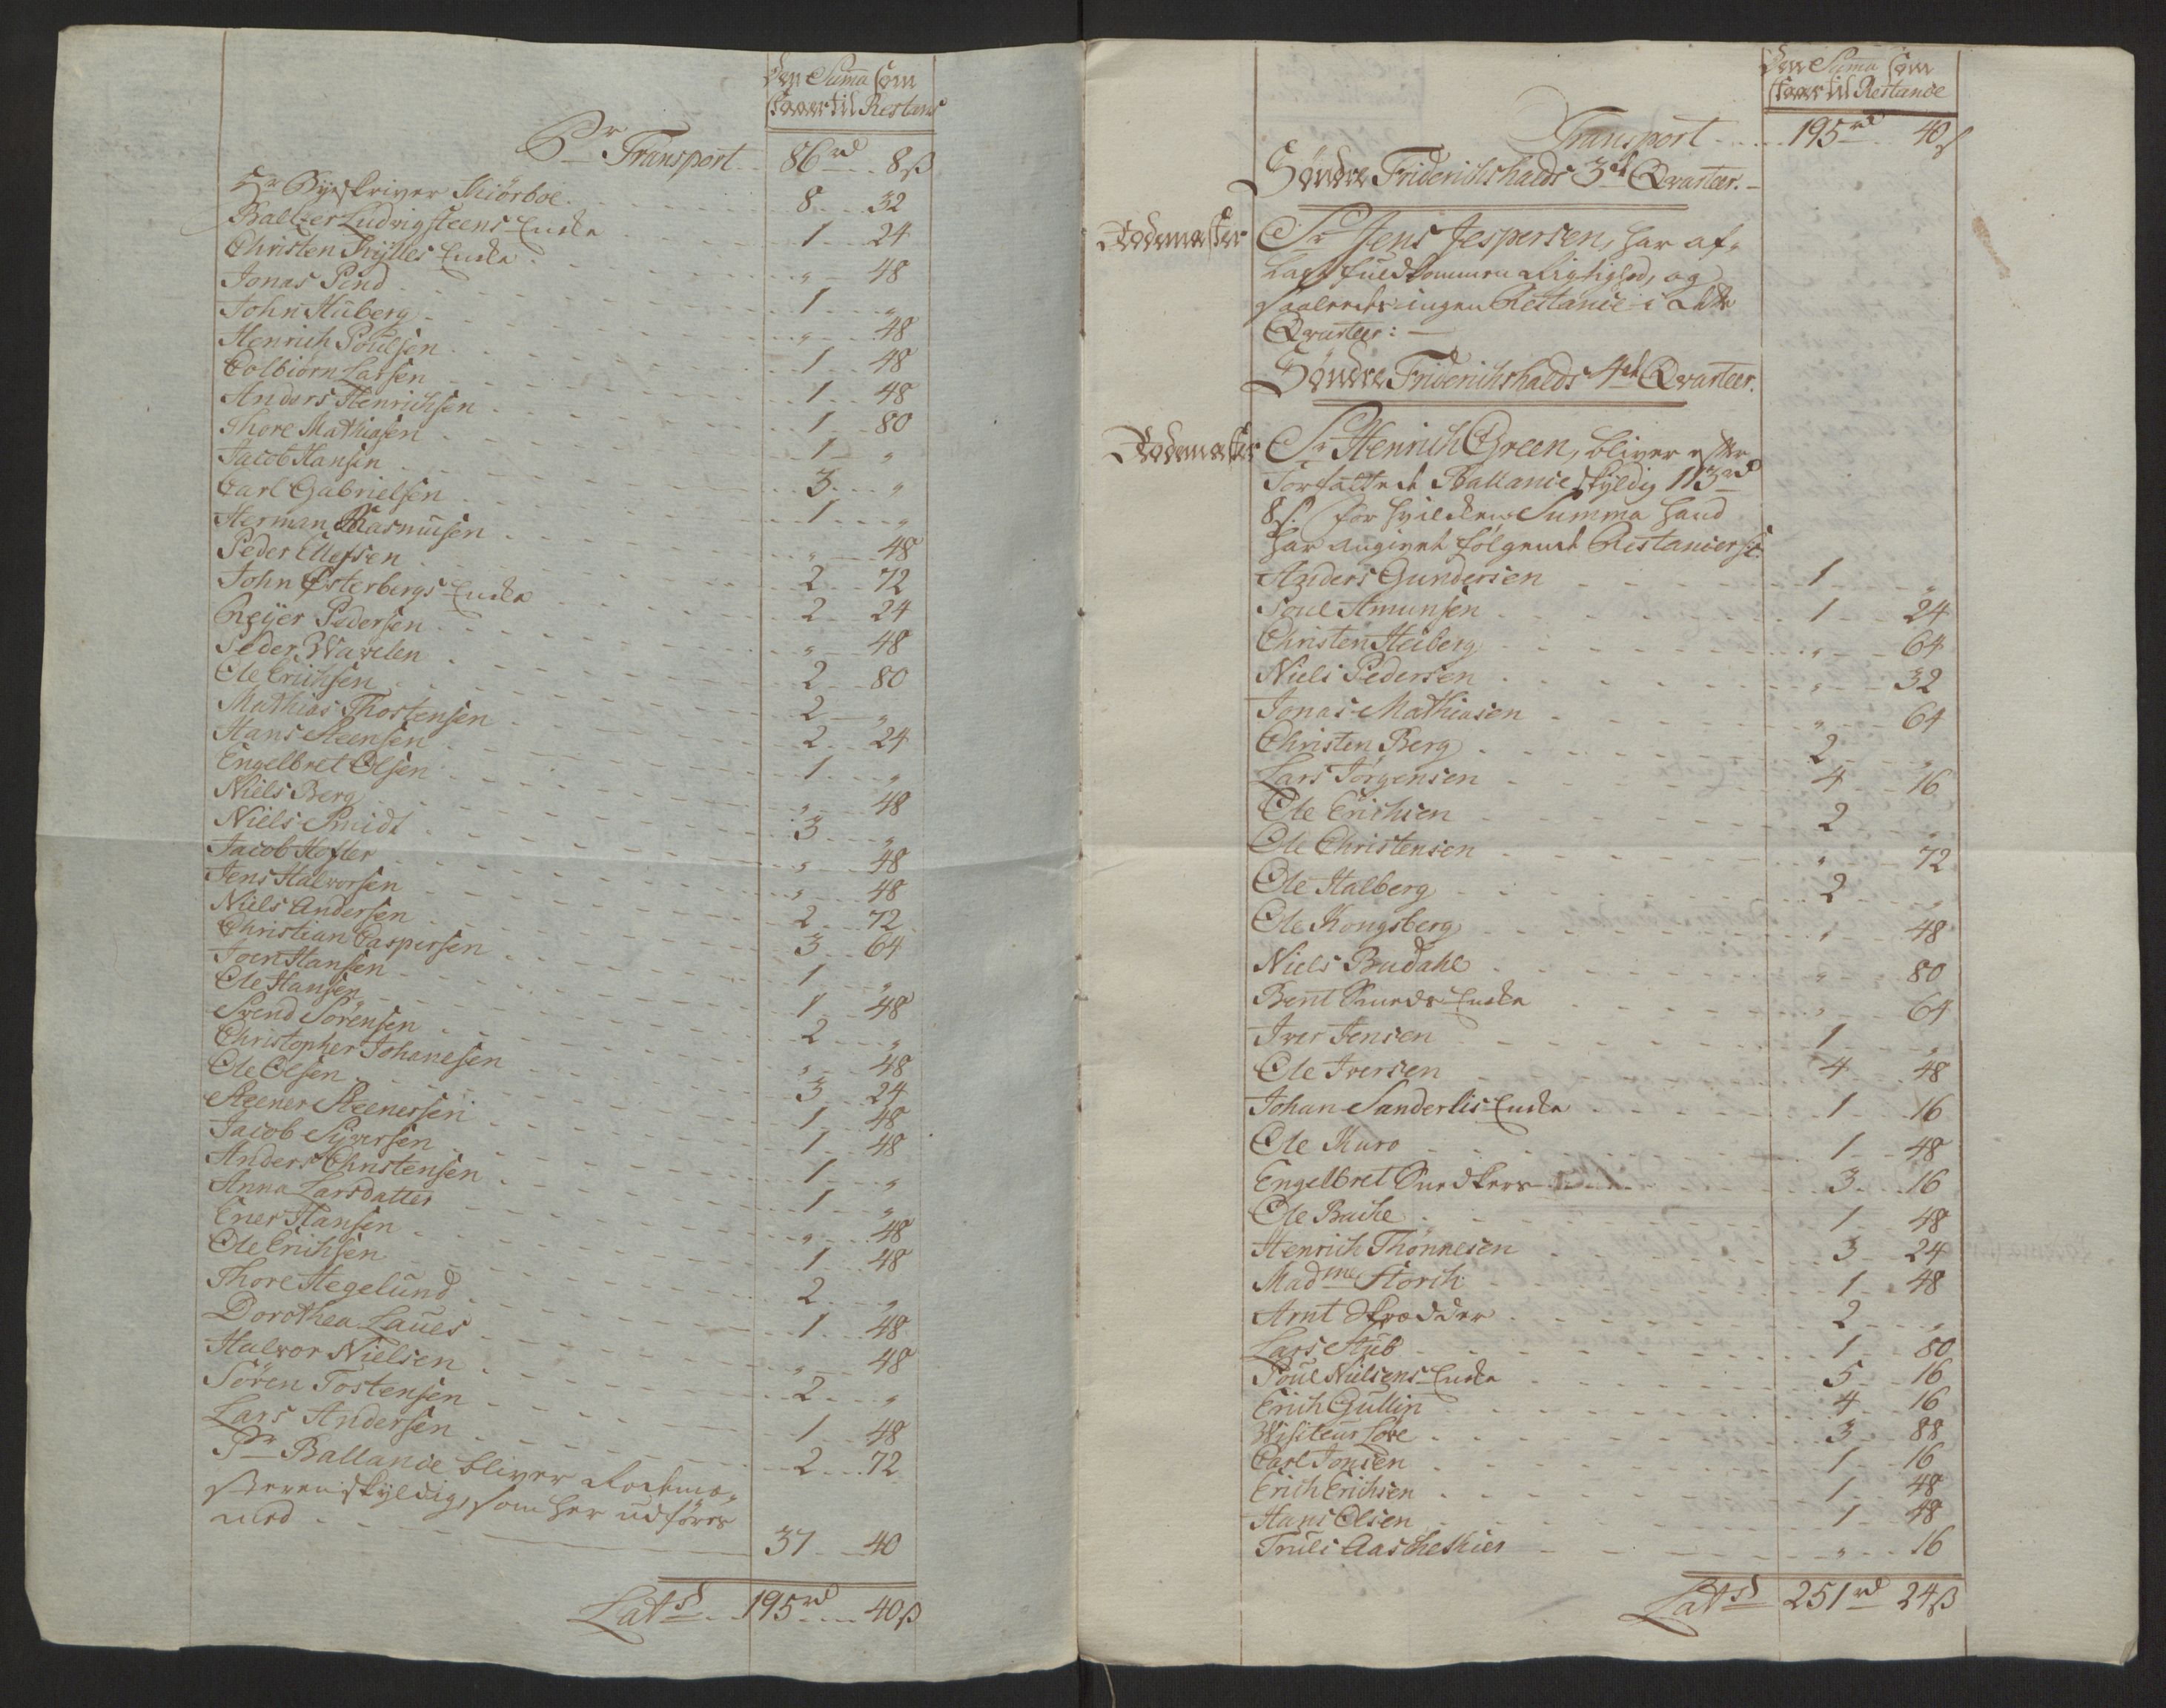 Den Suma som
staaer til Restans
Pr Transport 86rd 8ß
Hr Byeskriver Kiörboe 8 32
Baltzer Ludvigsteens Enke 1 24
Christen Kylles Enke " 48
Jonas Pind 1 "
John Huberg " 48
Henrich Poulsen 1 48
Colbiörn Larsen 1 48
Anders Henrichsen 1 80
Thore Mathiasen 1 "
Jacob Hansen 3 "
Carl Gabrielsen 1 "
Herman Rasmusen " 48
Peder Ellefsen 2 72
John Österbergs Enke 2 24
Greyer Pedersen " 48
Peder Wavelen 2 80
Ole Erichsen 2 "
Mathias Thostensen 2 24
Hans Steensen 1 "
Engelbret Olsen " 48
Niels Berg 3 "
Niels Smidt " 48
Jacob Hofler " 48
Jens Halvorsen 2 72
Niels Andersen 3 64
Christian Caspersen 1 "
Joen Hansen 1 48
Ole Hansen 2 "
Svend Sörensen " 48
Christopher Johanesen 3 24
Ole Olsen 1 48
Steener Steenersen 1 48
Jacob Syversen 1 "
Anders Christensen 1 "
Anna Larsdatter " 48
Ener Hansen 1 48
Ole Erichsen 2 "
Thore Hegelund 1 48
Dorothea Laues " 48
Halvor Nielsen 2 "
Sören Tostensen 1 48
Lars Andersen 2 72
Pr Ballance bliver Rodeme-
steren skyldig, som her udföres
med 37 40
Latd 195rd 40ß
Den Suma som
staaer til Restance
Transport 195rd 40ß
Söndre Friderichshalds 3de Qvarteer.
Rodemester Sr Jens Jespersen, har af-
lagt fuldkommen Rigtighed, og
saaledes ingen Restance i dette
Qvarteer:
Söndre Friderichshalds 4de Qvarteer.
Rodemester Sr Henrich Green, bliver efter
forfattede Ballance skyldig 113rd
8ß. for hvilken Summa hand
har angivet fölgende Restancer sc:
Anders Gundersen 1 "
Poul Amunsen 1 24
Christen Heiberg " 64
Niels Pedersen " 32
Jonas Mathiasen " 64
Christen Berg 2 "
Lars Jörgensen 4 16
Ole Erichsen 2 "
Ole Christensen " 72
Ole Halberg 2 "
Ole Kongsberg " 48
Niels Budahl " 80
Bent Smeds Enke " 64
Iver Jensen 1 "
Ole Iversen 4 48
Johan Sanderlis Enke 1 16
Ole Kuro 1 48
Engelbret Snedkers 3 16
Ole Bache 1 48
Henrich Thönnesen 3 24
Madme Storch 1 48
Arnt Skrædder 2 "
Lars Stub 1 80
Poul Nielsens Enke 5 16
Erich Gullin 4 16
Visiteur Löve 3 88
Carl Jonsen 1 16
Erich Erichsen 1 48
Hans Olsen 1 48
Truls Aaschehier " 16
Latd 251rd 24ß